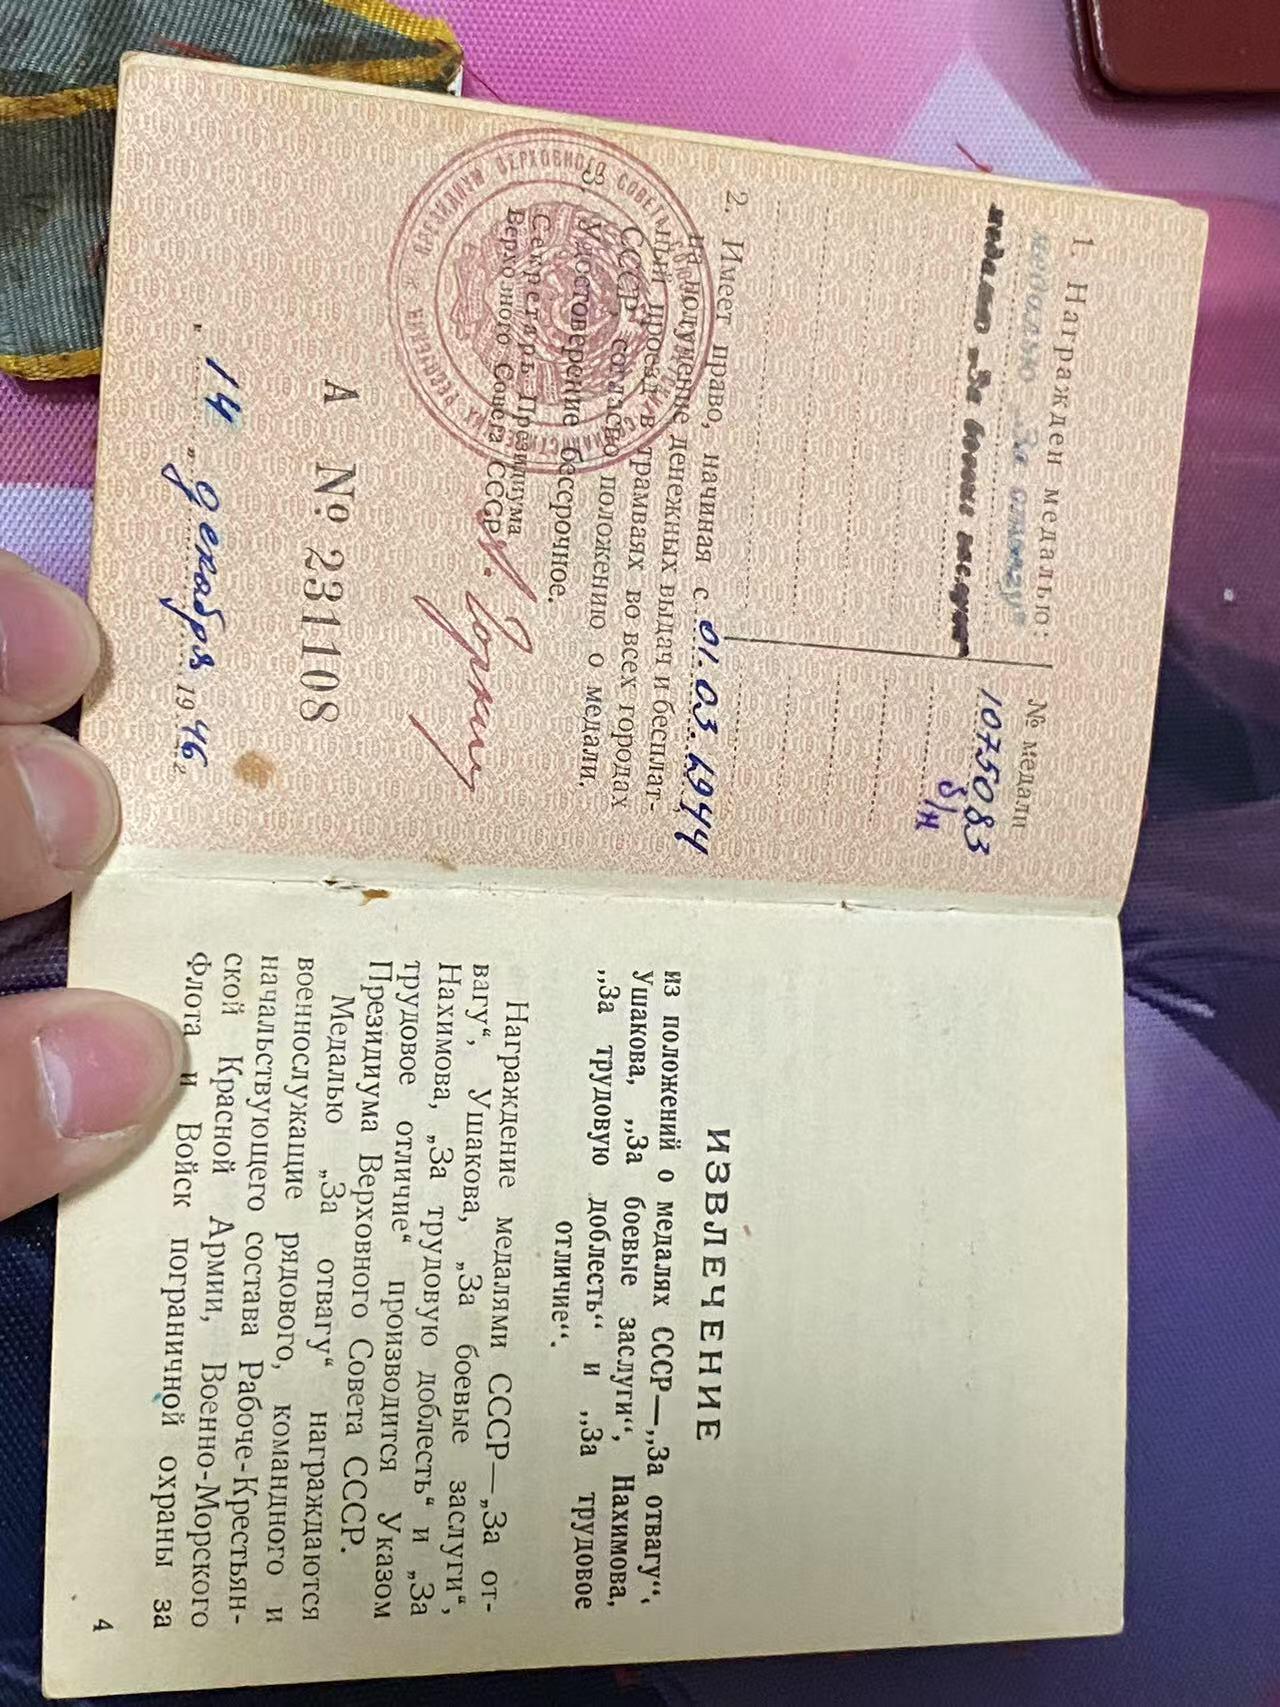 1. Награжден медалью:
№ медали
медалью „За отвагу“
1075083
медалью „За боевые заслуги“
б/н
2. Имеет право, начиная с 01.03.1944
на получение денежных выдач и бесплат-
ный проезд в трамваях во всех городах
СССР согласно положению о медали.
3. Удостоверение бессрочное.
Секретарь Президиума
Верховного Совета СССР
А № 231108
„14„ декабря 1946 г.
ПРЕЗИДИУМ ВЕРХОВНОГО СОВЕТА
ИЗВЛЕЧЕНИЕ
из положений о медалях СССР—„За отвагу“,
Ушакова, „За боевые заслуги“, Нахимова,
„За трудовую доблесть“ и „За трудовое
отличие“.
Награждение медалями СССР—„За от-
вагу“, Ушакова, „За боевые заслуги“,
Нахимова, „За трудовую доблесть“ и „За
трудовое отличие“ производится Указом
Президиума Верховного Совета СССР.
Медалью „За отвагу“ награждаются
военнослужащие рядового, командного и
начальствующего состава Рабоче-Крестьян-
ской Красной Армии, Военно-Морского
Флота и Войск пограничной охраны за
4